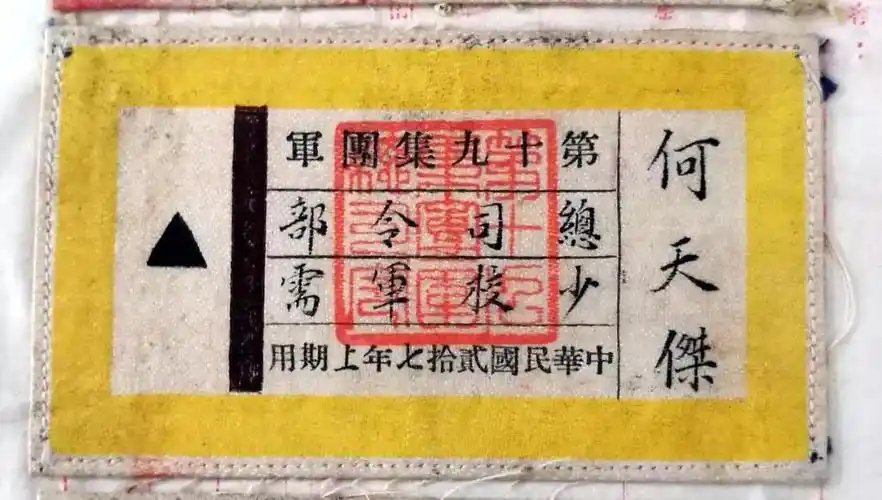 何天傑
第十九集團軍
總司令部
少校軍需
中華民國貳拾七年上期用